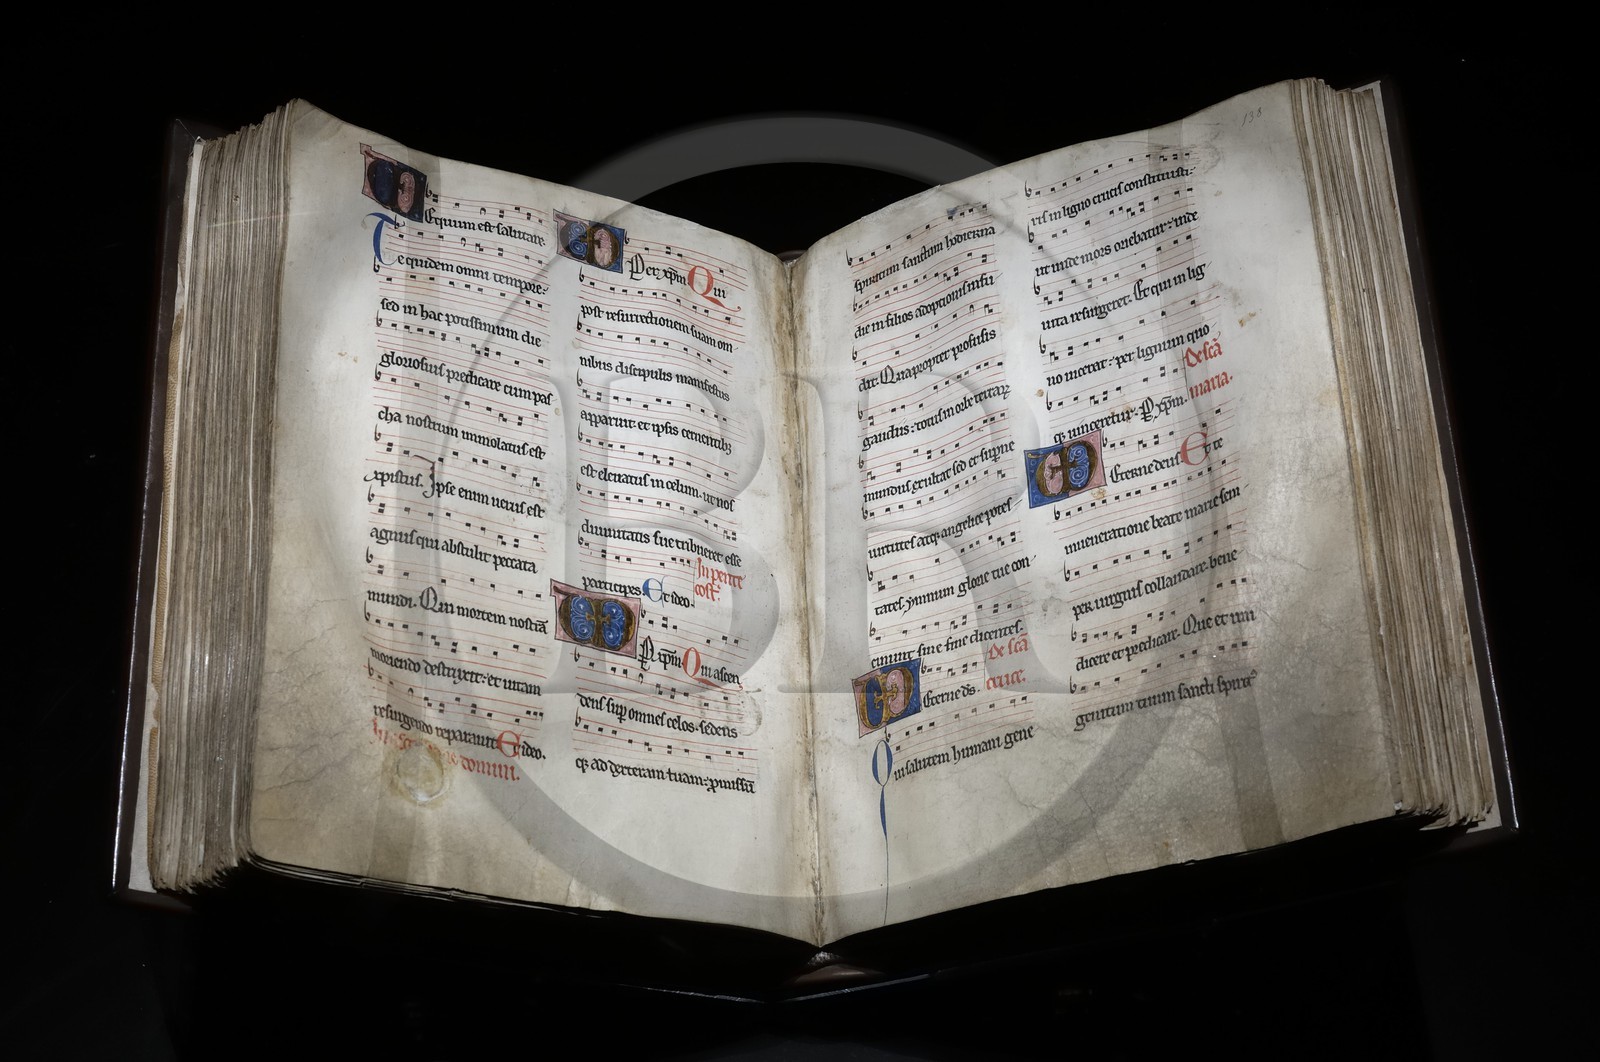 Equum est salutare.
Te quidem omni tempore.
sed in hac potissimum die
gloriosius predicare cum pas
cha nostrum immolatus est
xpistus. Ipse enim verus est
agnus qui abstulit peccata
mundi. Qui mortem nostrā
moriendo destruxit: et uitam
resurgendo reparauit Et ideo.
domini.
Per xp̄m Qui
post resurrectionem suam om
nibus discipulis manifestus
apparuit et ipsis cernentibꝫ
est eleuatus in celum. ut nos
diuinitatis sue tribueret esse
participes. Et ideo. In pente
cost.
P xp̄m Qui ascen
dens sup omnes celos. sedens
qꝫ ad dexteram tuam: p̄missū
138
spiritum sanctum hodierna
die in filios adoptionis effu
dit. Qua propter profusis
gaudiis: totus in orbe terraꝝ
mundus exultat sed et sup̄ne
uirtutes atqꝫ angelice potes
tates. ymnum glorie tue con
cinunt sine fine dicentes.
De scā
cruce.
Eterne ds.
Qui salutem humani gene
ris in ligno crucis constituisti.
ut unde mors oriebatur: inde
uita resurgeret. Et qui in lig
no uicerat: per lignum quo
De scā
maria.
qꝫ uinceretur. P xp̄m.
Eterne deus Et te
in ueneratione beate marie sem
per uirginis collaudare. bene
dicere et predicare. Que et uni
genitum tuum sancti spirit᷒
BR